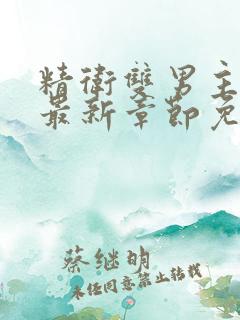 精衛雙男主
最新章節免
蔡继明
未经同意禁止转载